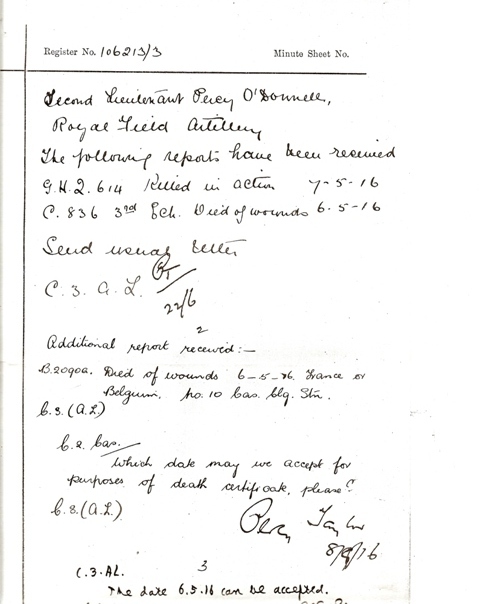 Register No. 106213/3
Minute Sheet No.
Second Lieutenant Percy O'Donnell,
Royal Field Artillery
The following reports have been received
G.H.Q. 614 Killed in action 7-5-16
C. 836 3rd Ech. Died of wounds 6-5-16
Send usual letter
C. 3. A. L.
22/6
2
Additional report received:-
B.2090a. Died of wounds 6-5-16. France or
Belgium. No. 10 Cas. Clg. Stn.
C.3.(A.L)
C.2. Cas.
Which date may we accept for
purposes of death certificate, please?
C.3.(A.L.)
Percy Taylor
3
C.3.AL.
The date 6.5.16 can be accepted.